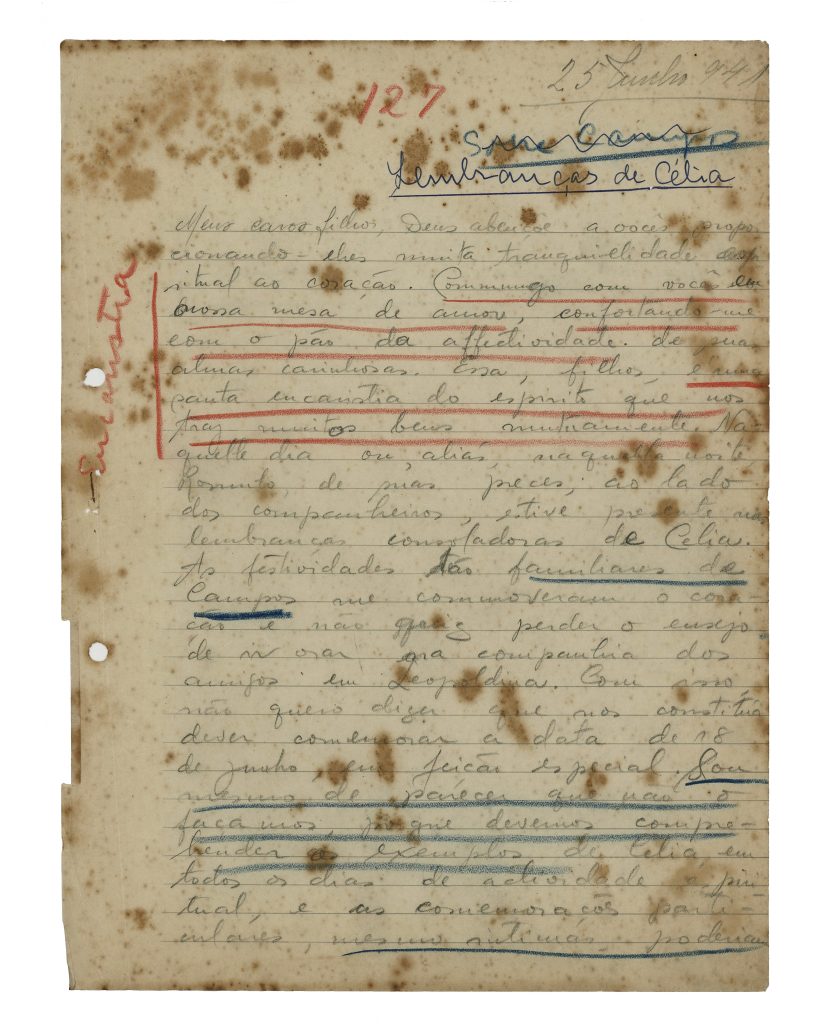 25 Junho 941
127
Lembranças de Célia
Eucaristia
Meus caros filhos, Deus abençoe a vocês propor
cionando-lhes muita tranquilidade espi
ritual ao coração. Commungo com vocês em
nossa mesa de amor, confortando-me
com o pão da affectividade de suas
almas carinhosas. Essa, filhos é uma
santa eucaristia do espirito que nos
traz muitos bens mutuamente. Na-
quelle dia ou, aliás, naquella noite
Romulo, de suas preces, ao lado
dos companheiros, estive presente nas
lembranças consoladoras de Celia.
As festividades tão familiares de
Campos me commoveram o cora-
ção e não quiz perder o ensejo
de ir orar na companhia dos
amigos em Leopoldina. Com isso,
não quero dizer que nos constitúa
dever comemorar a data de 18
de junho, em feição especial. Sou
mesmo de parecer que não o
façamos, porque devemos compre-
hender os exemplos de Celia, em
todos os dias de actividade espiri
tual, e as comemorações parti-
culares, mesmo intimas, poderiam